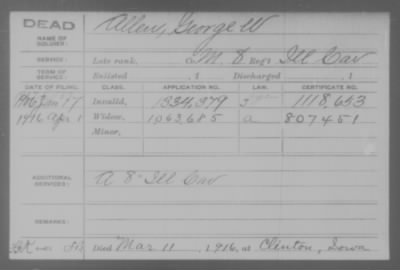 DEAD
NAME OF SOLDIER: Allen, George W
SERVICE: Late rank, Co. M. 8 Reg't Ill Cav
TERM OF SERVICE: Enlisted , 1 Discharged , 1
DATE OF FILING. CLASS. APPLICATION NO. LAW. CERTIFICATE NO.
Jan 17 Invalid, 1334,379 1118,653
1916 Apr 1 Widow, 1063,685 a 807451
Minor,
ADDITIONAL SERVICES: A 8" Ill Cav
REMARKS:
Died Mar 11, 1916, at Clinton, Iowa